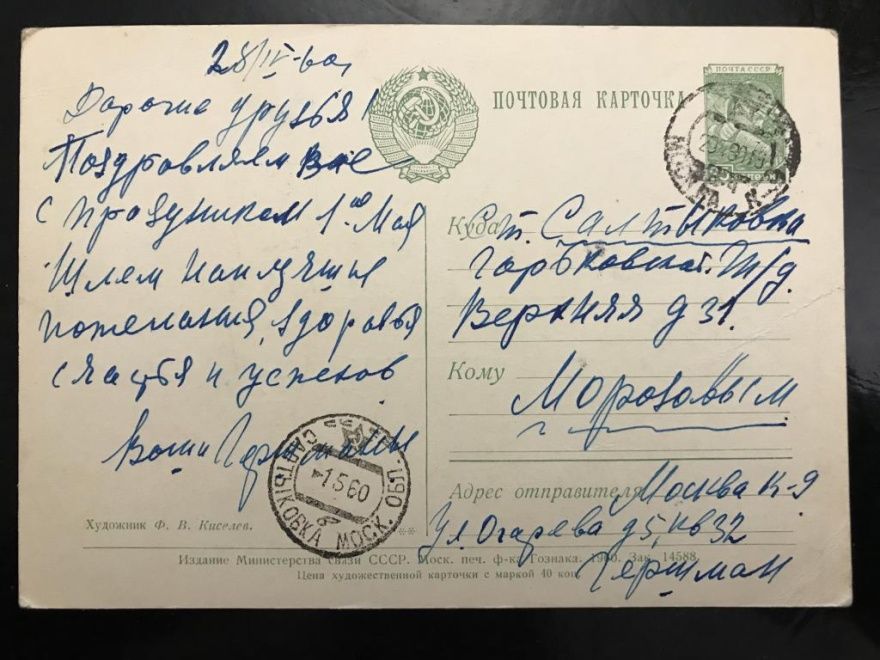 28/IV-60г
Дорогие друзья!
Поздравляем Вас
с праздником 1го Мая
Шлем наилучшие
пожелания, здоровья
счастья и успехов
Ваши Гершманы
ПОЧТОВАЯ КАРТОЧКА
ПОЧТА СССР
МОСКВА К-9
Куда Ст. Салтыковка
Горьковской ж/д.
Верхняя д 31.
Кому
Морозовым
САЛТЫКОВКА МОСК. ОБЛ.
1560
Адрес отправителя Москва К-9
Ул. Огарева д 5, кв 32
Гершман
Художник Ф. В. Киселев.
Издание Министерства связи СССР. Моск. печ. ф-ка Гознака. 1960. Зак. 14588.
Цена художественной карточки с маркой 40 коп.